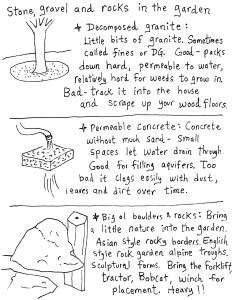 Stone, gravel and rocks in the garden
* Decomposed granite:
Little bits of granite. Sometimes
called fines or DG. Good-packs
down hard, permeable to water,
relatively hard for weeds to grow in.
Bad-track it into the house
and scrape up your wood floors.
* Permeable concrete: Concrete
without much sand - Small
spaces let water drain through.
Good for filling aquifers. Too
bad it clogs easily with dust,
leaves and dirt over time.
* Big ol boulders & rocks: Bring
a little nature into the garden.
Asian style rocky borders. English
style rock garden alpine troughs.
Sculptural forms. Bring the forklift,
tractor, Bobcat, winch for
placement. Heavy!!